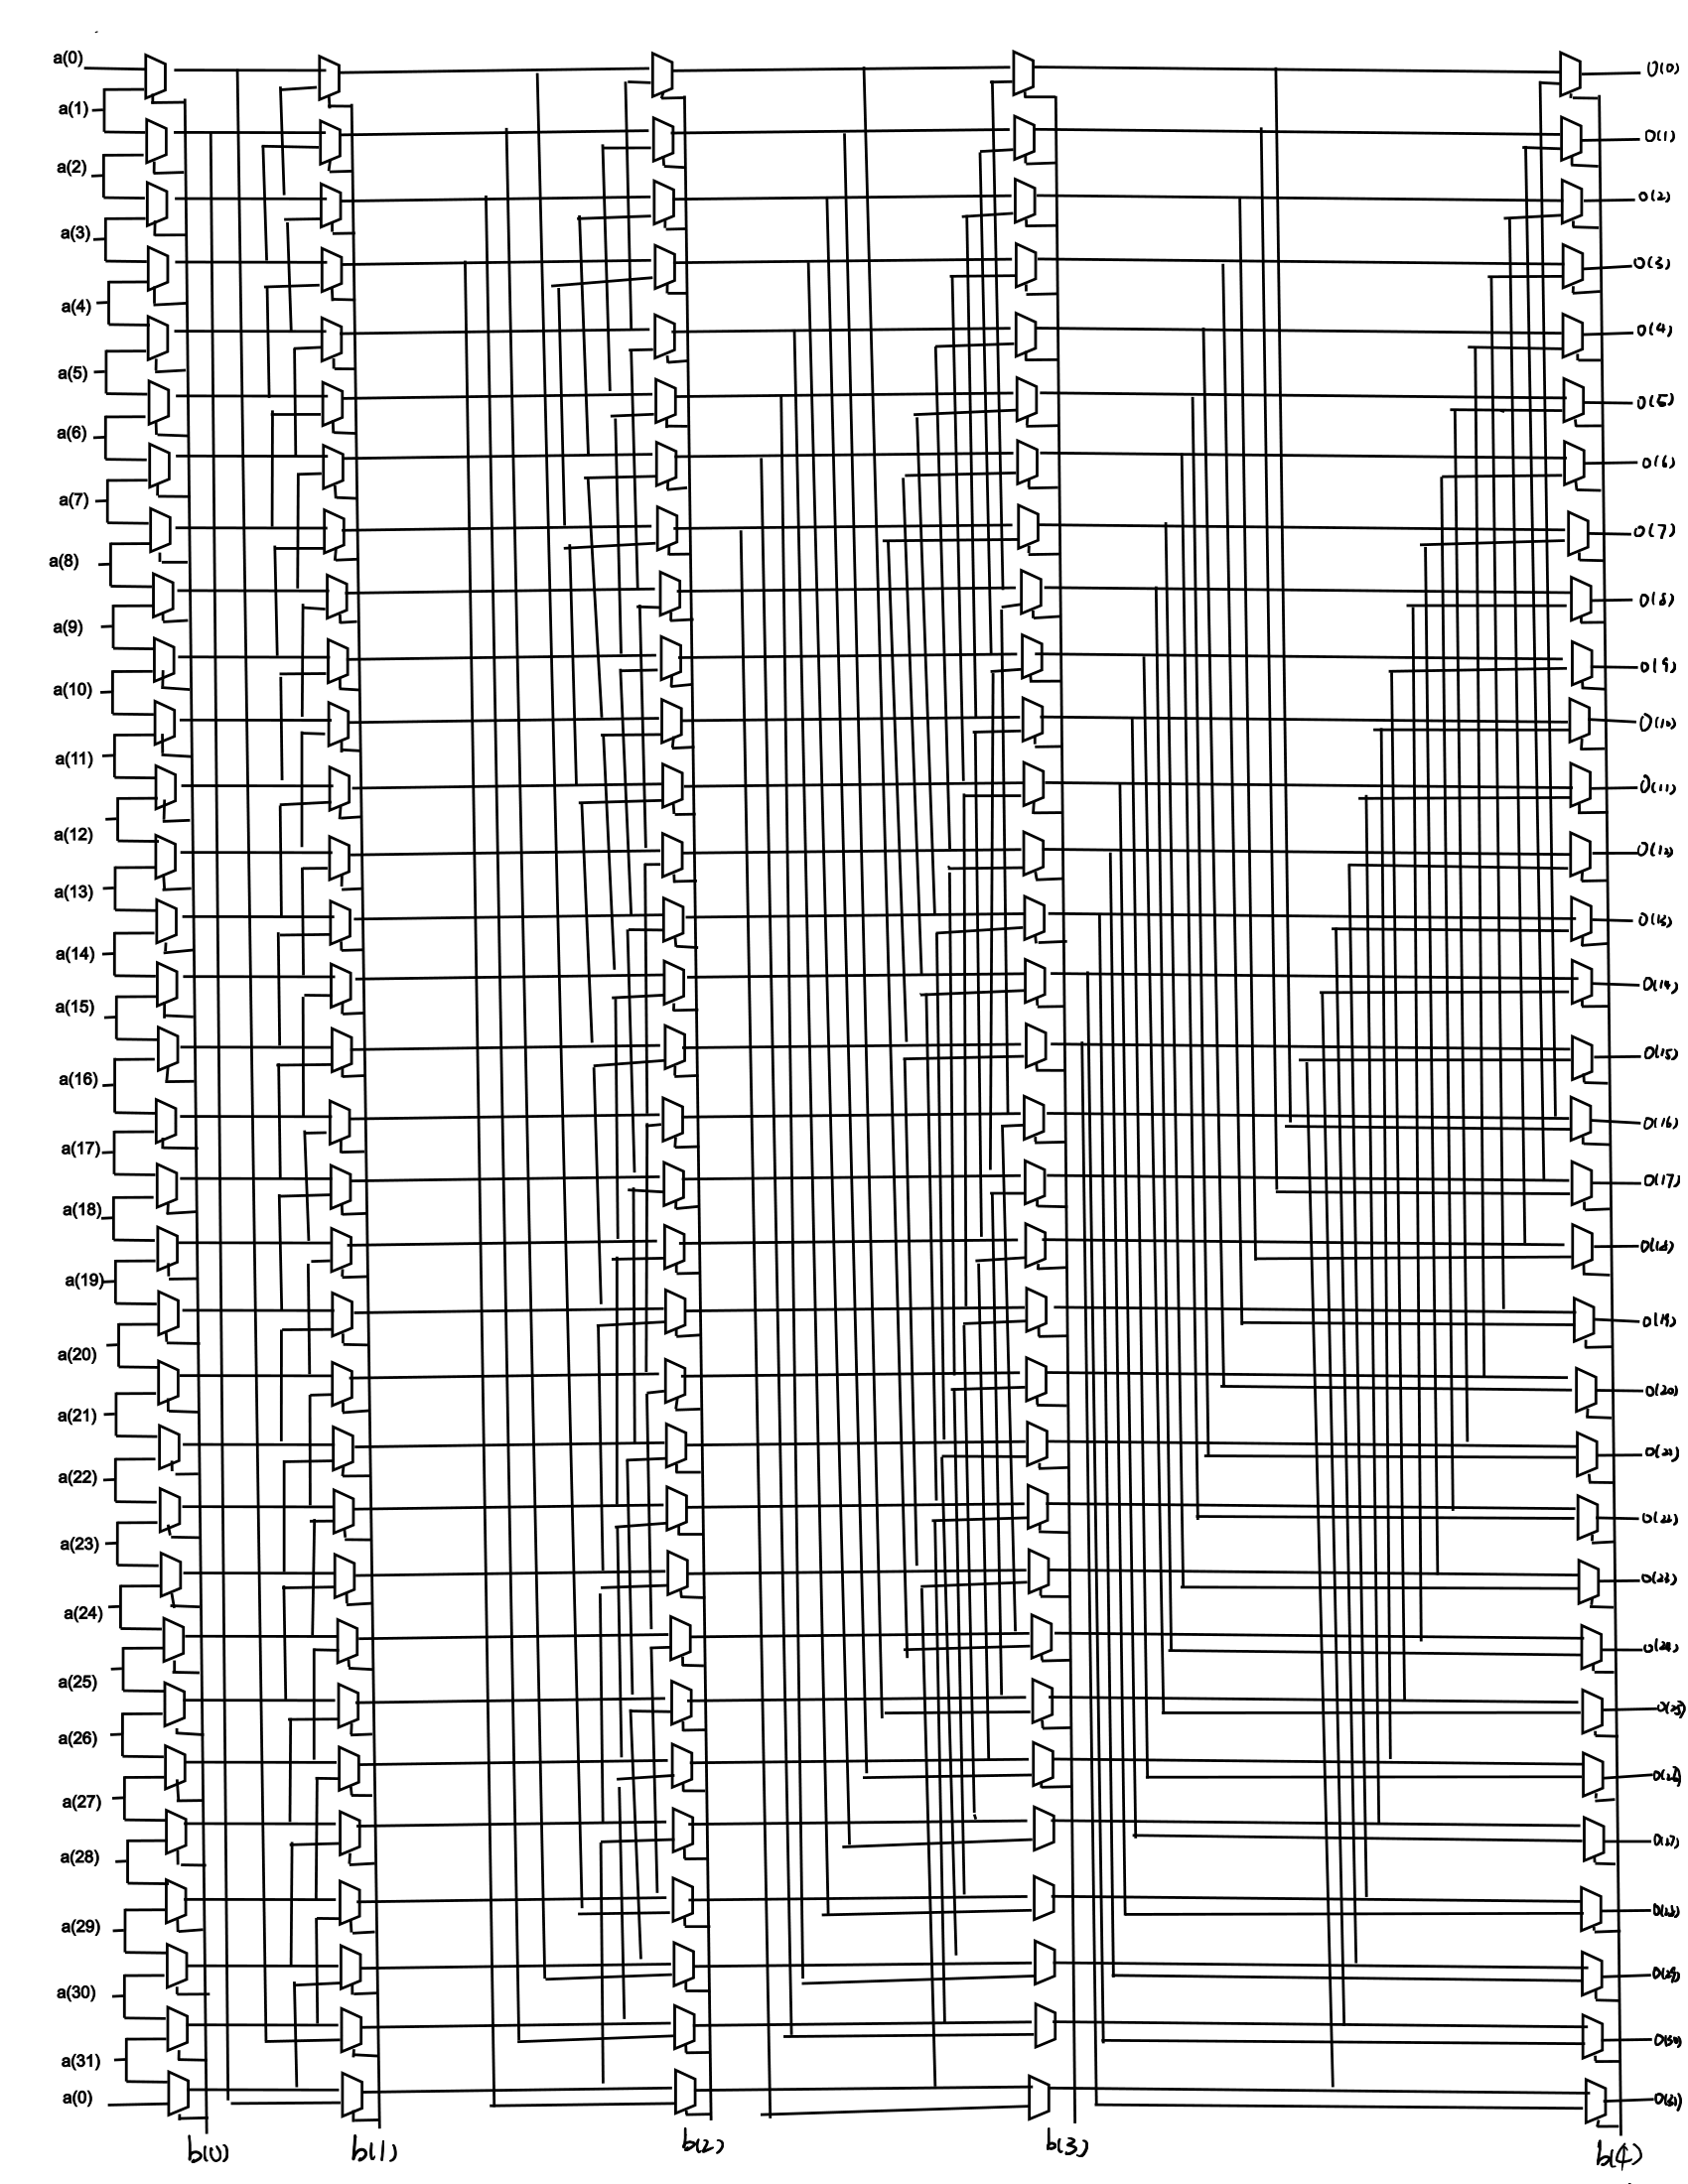 a(0)
a(1)
a(2)
a(3)
a(4)
a(5)
a(6)
a(7)
a(8)
a(9)
a(10)
a(11)
a(12)
a(13)
a(14)
a(15)
a(16)
a(17)
a(18)
a(19)
a(20)
a(21)
a(22)
a(23)
a(24)
a(25)
a(26)
a(27)
a(28)
a(29)
a(30)
a(31)
a(0)
b(0)
b(1)
b(2)
b(3)
b(4)
O(0)
O(1)
O(2)
O(3)
O(4)
O(5)
O(6)
O(7)
O(8)
O(9)
O(10)
O(11)
O(12)
O(13)
O(14)
O(15)
O(16)
O(17)
O(18)
O(19)
O(20)
O(21)
O(22)
O(23)
O(24)
O(25)
O(27)
O(30)
O(31)